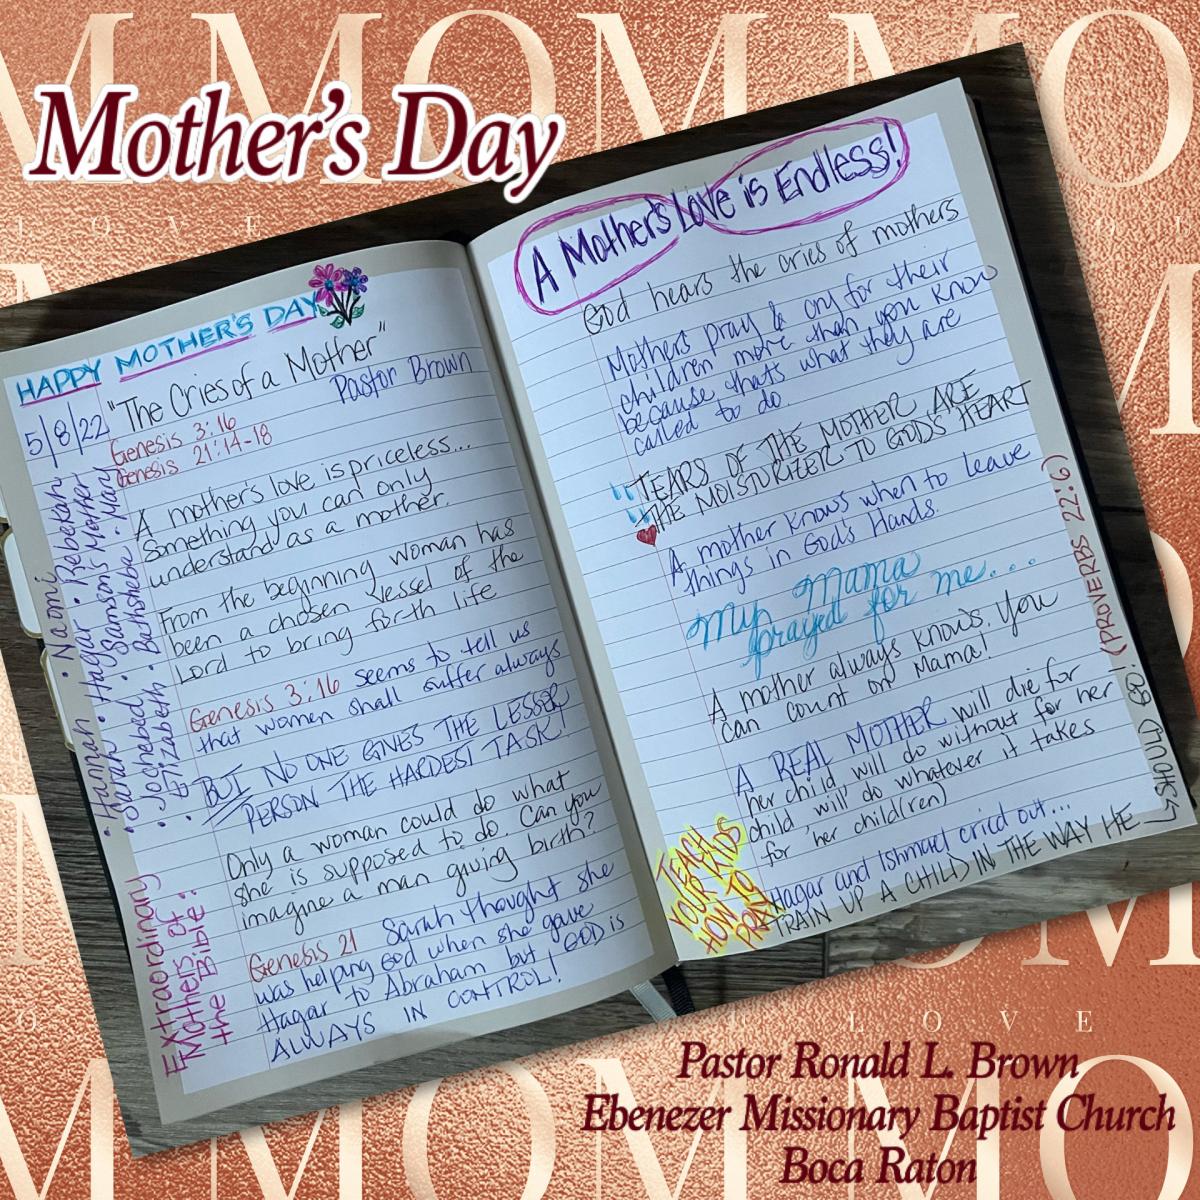 Mother's Day
HAPPY MOTHER'S DAY
5/8/22
"The Cries of a Mother"
Pastor Brown
Genesis 3:16
Genesis 21:14-18
A mother's love is priceless...
Something you can only
understand as a mother.
From the beginning woman has
been a chosen vessel of the
Lord to bring forth life
Genesis 3:16 seems to tell us
that women shall suffer always
BUT NO ONE GIVES THE LESSER
PERSON THE HARDEST TASK!
Only a woman could do what
she is supposed to do. Can you
imagine a man giving birth?
Genesis 21 Sarah thought she
was helping God when she gave
Hagar to Abraham but GOD is
ALWAYS IN CONTROL!
Extraordinary
Mothers of
the Bible:
• Hannah • Naomi
• Sarah • Hagar • Rebekah
• Jochebed • Samson's Mother
• Elizabeth • Bathsheba • Mary
A Mother's Love is Endless!
God hears the cries of mothers
Mothers pray & cry for their
children more than you know
because thats what they are
called to do
TEARS OF THE MOTHER ARE
THE MOISTURIZER TO GOD'S HEART
A mother knows when to leave
things in God's Hands.
My Mama
prayed for me...
A mother always knows. You
can count on Mama!
A REAL MOTHER will die for
her child will do without for her
child will do whatever it takes
for her child(ren)
Hagar and Ishmael cried out...
TEACH
YOUR KIDS
HOW TO
PRAY
TRAIN UP A CHILD IN THE WAY HE
SHOULD GO. (PROVERBS 22:6)
MOM
LOVE
Pastor Ronald L. Brown
Ebenezer Missionary Baptist Church
Boca Raton